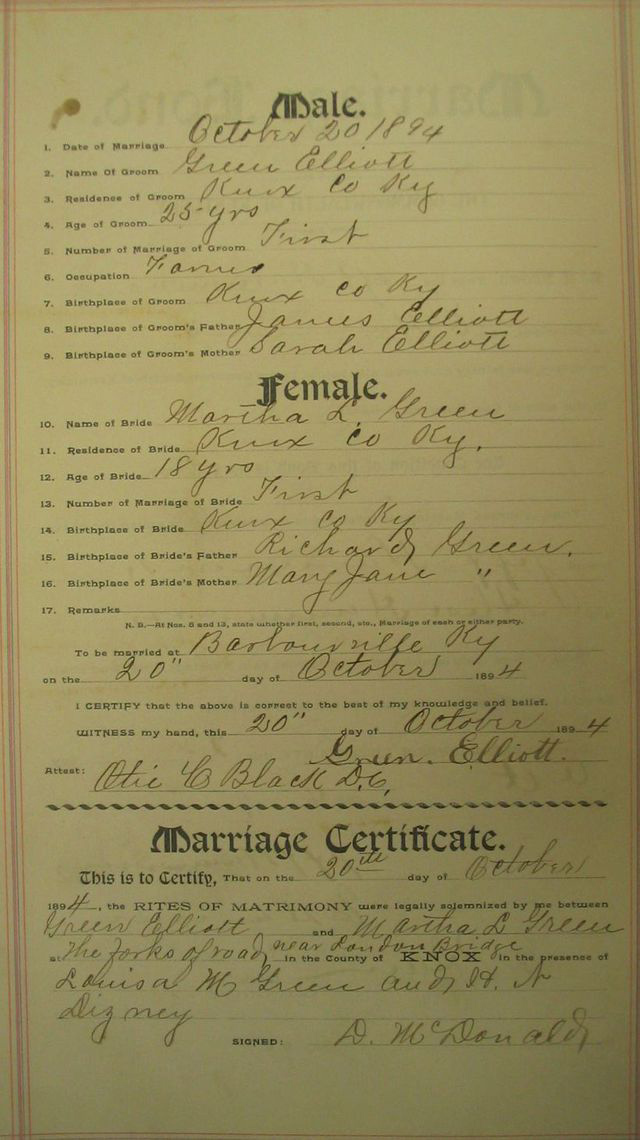 Male.
1. Date of Marriage October 20 1894
2. Name Of Groom Green Elliott
3. Residence of Groom Knox Co Ky
4. Age of Groom 25 yrs
5. Number of Marriage of Groom First
6. Occupation Farmer
7. Birthplace of Groom Knox Co Ky
8. Birthplace of Groom's Father James Elliott
9. Birthplace of Groom's Mother Sarah Elliott
Female.
10. Name of Bride Martha L. Green
11. Residence of Bride Knox Co Ky.
12. Age of Bride 18 yrs
13. Number of Marriage of Bride First
14. Birthplace of Bride Knox Co Ky
15. Birthplace of Bride's Father Richard Green.
16. Birthplace of Bride's Mother Mary Jane "
17. Remarks
N. B.—At Nos. 5 and 13, state whether first, second, etc., Marriage of each or either party.
To be married at Barbourville Ky
on the 20" day of October 1894
I CERTIFY that the above is correct to the best of my knowledge and belief.
WITNESS my hand, this 20" day of October 1894
Green. Elliott.
Attest: Otie C Black D.C.
Marriage Certificate.
This is to Certify, That on the 20th day of October
1894, the RITES OF MATRIMONY were legally solemnized by me between
Green Elliott and Martha L Green
at The Forks of road, near London Bridge in the County of KNOX in the presence of
Louisa M Green and H. N
Dizney
SIGNED: D. McDonald